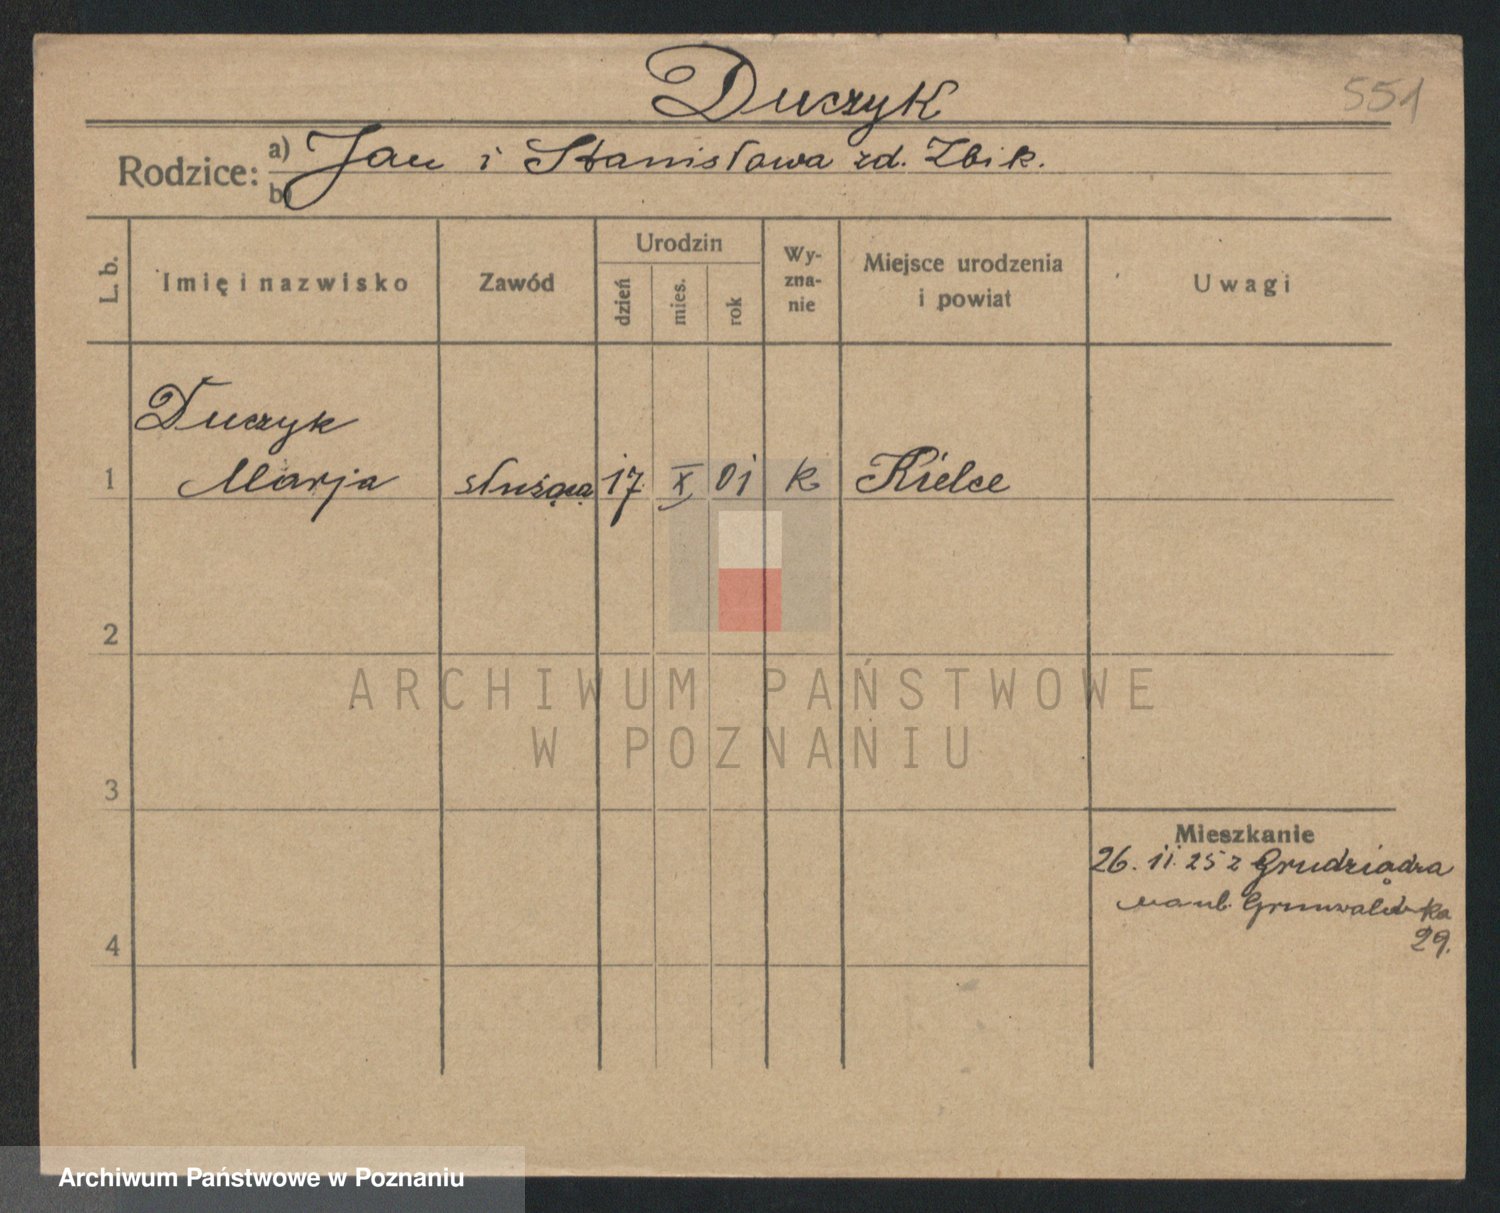 Duczyk
551
Rodzice: a) Jan i Stanisława zd. Zbik.
b)
L. b.
Imię i nazwisko
Zawód
Urodzin
dzień
mies.
rok
Wy-
zna-
nie
Miejsce urodzenia
i powiat
Uwagi
Duczyk
1 Marja służąca 17 X 01 k Kielce
2
ARCHIWUM PAŃSTWOWE
W POZNANIU
3
Mieszkanie
26. 11. 25 z Grudziądza
na ul. Grunwaldzka
29.
4
Archiwum Państwowe w Poznaniu